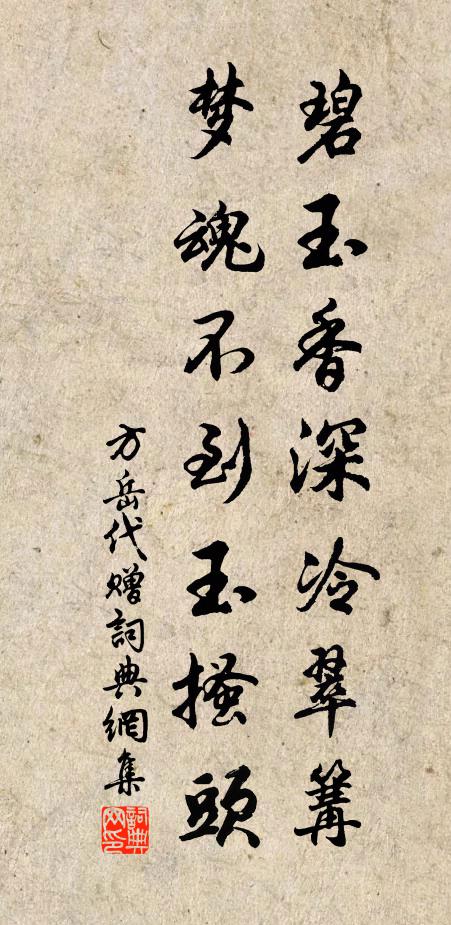 碧玉香深冷翠篝
梦魂不到玉搔頭
方岳代赠詞典網集
詞典網印